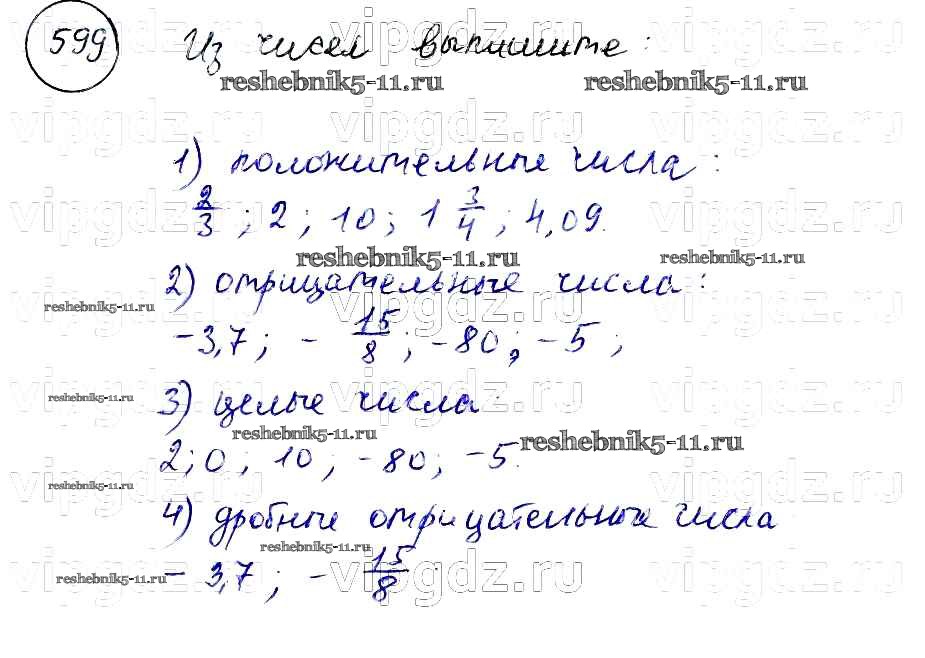 599 Из чисел выпишите:
reshebnik5-11.ru reshebnik5-11.ru
vipgdz.ru vipgdz.ru vipgdz.ru
1) положительные числа:
2/3; 2; 10; 1 3/4; 4,09.
vipgdz.ru vipgdz.ru vipgdz.ru
reshebnik5-11.ru reshebnik5-11.ru
2) отрицательные числа:
reshebnik5-11.ru
vipgdz.ru vipgdz.ru vipgdz.ru
-3,7; -15/8; -80; -5;
vipgdz.ru vipgdz.ru vipgdz.ru
reshebnik5-11.ru
3) целые числа
reshebnik5-11.ru reshebnik5-11.ru
2; 0; 10; -80; -5.
reshebnik5-11.ru
vipgdz.ru vipgdz.ru vipgdz.ru
4) дробные отрицательные числа
reshebnik5-11.ru
reshebnik5-11.ru
-3,7; -15/8
vipgdz.ru vipgdz.ru vipgdz.ru